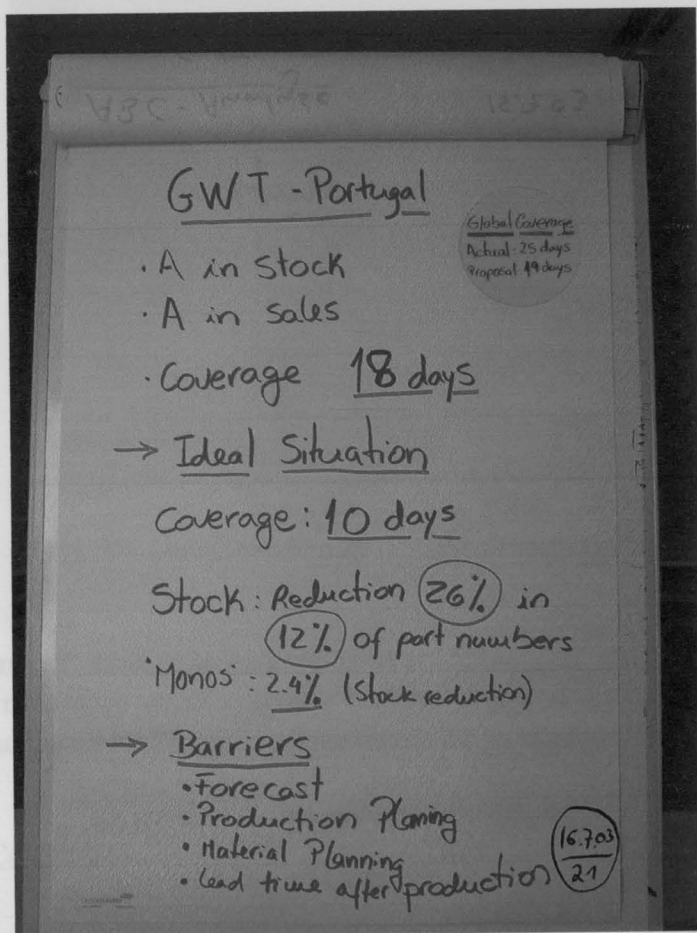 ABC - Analyse 15.7.03
GWT - Portugal
Global Coverage
Actual - 25 days
Proposal 19 days
· A in stock
· A in sales
· Coverage 18 days
→ Ideal Situation
Coverage: 10 days
Stock: Reduction 26% in
12% of part numbers
'Monos': 2.4% (Stock reduction)
→ Barriers
• Forecast
• Production Planing
• Material Planning
• Lead time after production
16.7.03
21